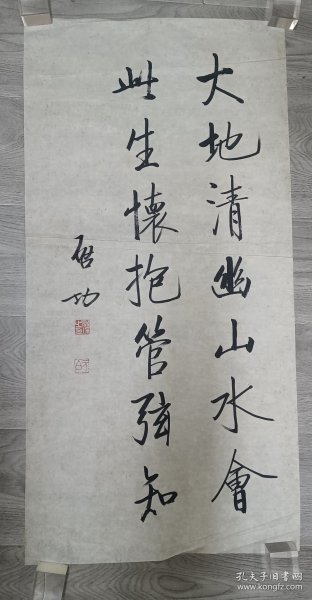 大地清幽山水會
此生懷抱管弦知
啟功
孔夫子旧书网
www.kongfz.com